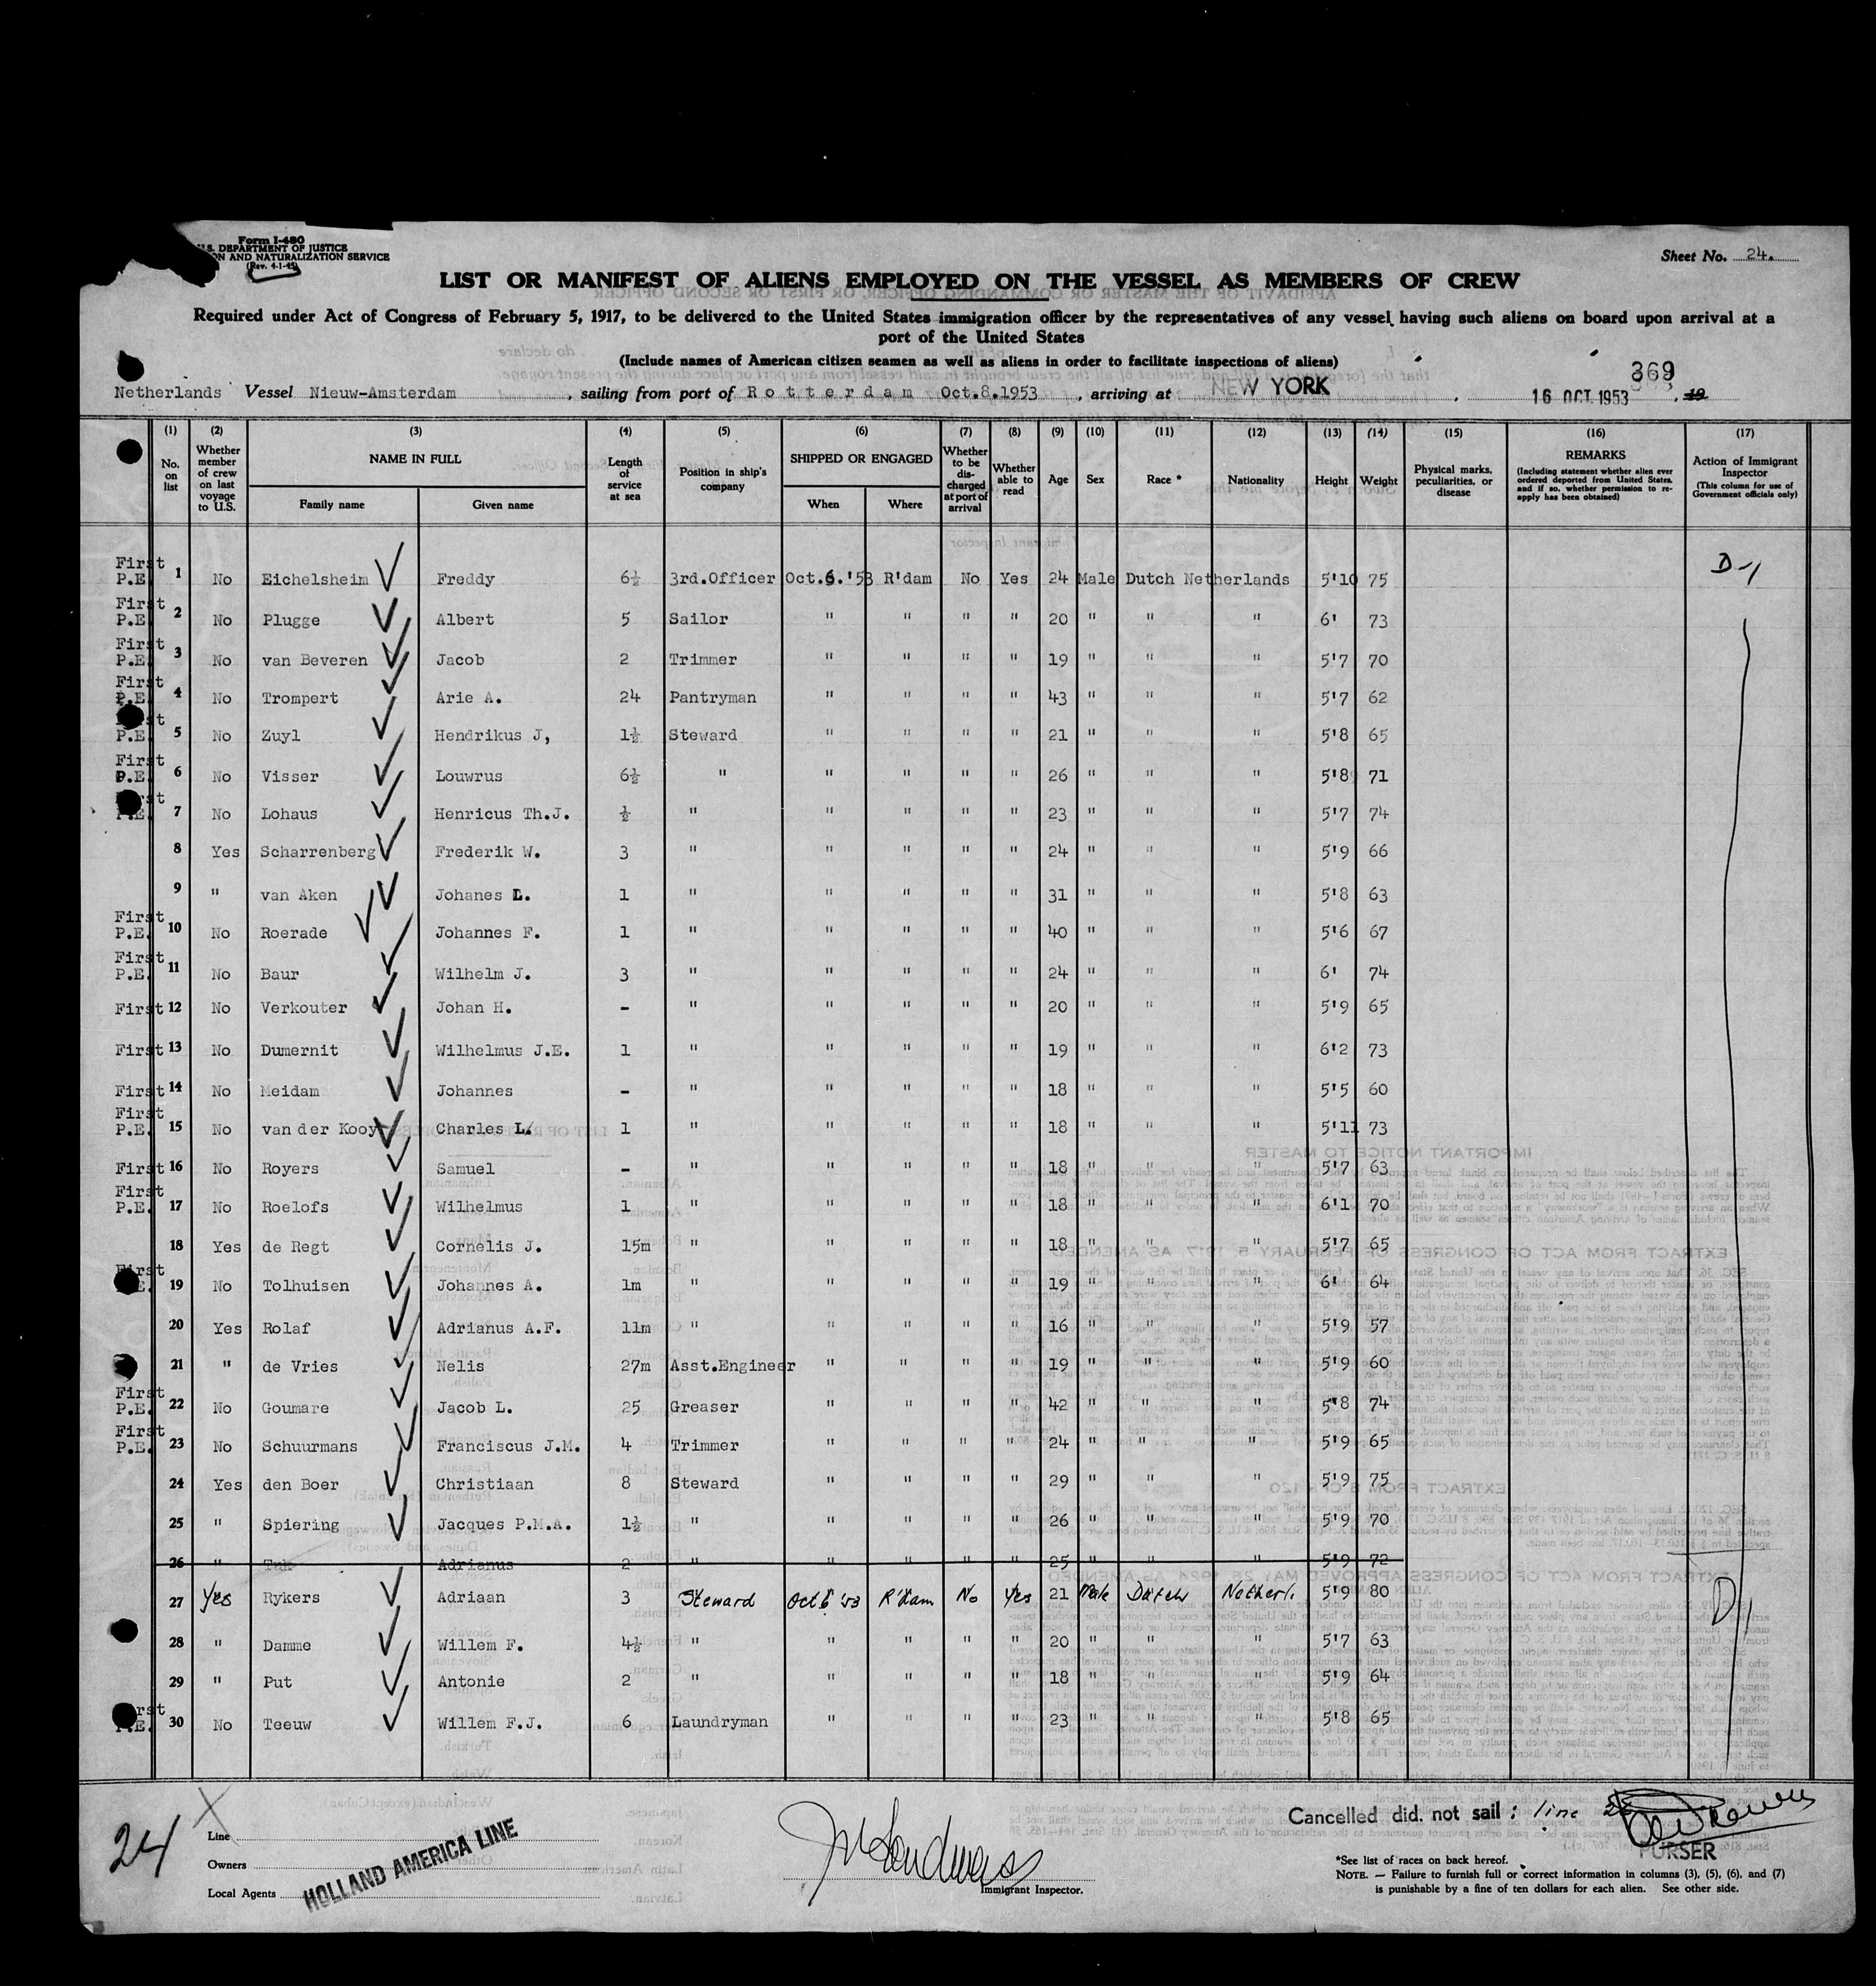 Form I-480
U.S. DEPARTMENT OF JUSTICE
ON AND NATURALIZATION SERVICE
(Rev. 4-1-45)
Sheet No. 24.
LIST OR MANIFEST OF ALIENS EMPLOYED ON THE VESSEL AS MEMBERS OF CREW
Required under Act of Congress of February 5, 1917, to be delivered to the United States immigration officer by the representatives of any vessel having such aliens on board upon arrival at a
port of the United States
(Include names of American citizen seamen as well as aliens in order to facilitate inspections of aliens)
369
Netherlands Vessel Nieuw-Amsterdam, sailing from port of Rotterdam Oct.8.1953, arriving at NEW YORK, 16 OCT 1953, 19
(1) (2) (3) (4) (5) (6) (7) (8) (9) (10) (11) (12) (13) (14) (15) (16) (17)
No. on list | Whether member of crew on last voyage to U.S. | NAME IN FULL | Family name | Given name | Length of service at sea | Position in ship's company | SHIPPED OR ENGAGED | When | Where | Whether to be discharged at port of arrival | Whether able to read | Age | Sex | Race * | Nationality | Height | Weight | Physical marks, peculiarities, or disease | REMARKS (Including statement whether alien ever ordered deported from United States, and if so, whether permission to re-apply has been obtained) | Action of Immigrant Inspector (This column for use of Government officials only)
First P.E. 1 No Eichelsheim Freddy 6½ 3rd.Officer Oct.6.'53 R'dam No Yes 24 Male Dutch Netherlands 5'10 75 D-1
First P.E. 2 No Plugge Albert 5 Sailor " " " " 20 " " " 6' 73
First P.E. 3 No van Beveren Jacob 2 Trimmer " " " " 19 " " " 5'7 70
First P.E. 4 No Trompert Arie A. 24 Pantryman " " " " 43 " " " 5'7 62
First P.E. 5 No Zuyl Hendrikus J, 1½ Steward " " " " 21 " " " 5'8 65
First P.E. 6 No Visser Louwrus 6½ " " " " " 26 " " " 5'8 71
First P.E. 7 No Lohaus Henricus Th.J. ½ " " " " " 23 " " " 5'7 74
8 Yes Scharrenberg Frederik W. 3 " " " " " 24 " " " 5'9 66
9 " van Aken Johanes L. 1 " " " " " 31 " " " 5'8 63
First P.E. 10 No Roerade Johannes F. 1 " " " " " 40 " " " 5'6 67
First P.E. 11 No Baur Wilhelm J. 3 " " " " " 24 " " " 6' 74
First 12 No Verkouter Johan H. - " " " " " 20 " " " 5'9 65
First 13 No Dumernit Wilhelmus J.E. 1 " " " " " 19 " " " 6'2 73
First 14 No Meidam Johannes - " " " " " 18 " " " 5'5 60
First P.E. 15 No van der Kooy Charles L. 1 " " " " " 18 " " " 5'11 73
First 16 No Royers Samuel - " " " " " 18 " " " 5'7 63
First P.E. 17 No Roelofs Wilhelmus 1 " " " " " 18 " " " 6'1 70
18 Yes de Regt Cornelis J. 15m " " " " " 18 " " " 5'7 65
First P.E. 19 No Tolhuisen Johannes A. 1m " " " " " 19 " " " 6' 64
20 Yes Rolaf Adrianus A.F. 11m " " " " " 16 " " " 5'9 57
21 " de Vries Nelis 27m Asst.Engineer " " " " 19 " " " 5'9 60
First P.E. 22 No Goumare Jacob L. 25 Greaser " " " " 42 " " " 5'8 74
First P.E. 23 No Schuurmans Franciscus J.M. 4 Trimmer " " " " 24 " " " 5'9 65
24 Yes den Boer Christiaan 8 Steward " " " " 29 " " " 5'9 75
25 " Spiering Jacques P.M.A. 1½ " " " " " 26 " " " 5'9 70
26 " Adrianus 2 " " " " " 25 " " " 5'9 72
27 Yes Rykers Adriaan 3 Steward Oct 6 '53 R'dam No Yes 21 Male Dutch Netherl. 5'9 80 D
28 " Damme Willem F. 4½ " " " " " 20 " " " 5'7 63
29 " Put Antonie 2 " " " " " 18 " " " 5'9 64
First P.E. 30 No Teeuw Willem F.J. 6 Laundryman " " " " 23 " " " 5'8 65
24
Line
Owners
Local Agents
HOLLAND AMERICA LINE
Immigrant Inspector.
Cancelled did. not sail: line
PURSER
*See list of races on back hereof.
NOTE. — Failure to furnish full or correct information in columns (3), (5), (6), and (7)
is punishable by a fine of ten dollars for each alien. See other side.